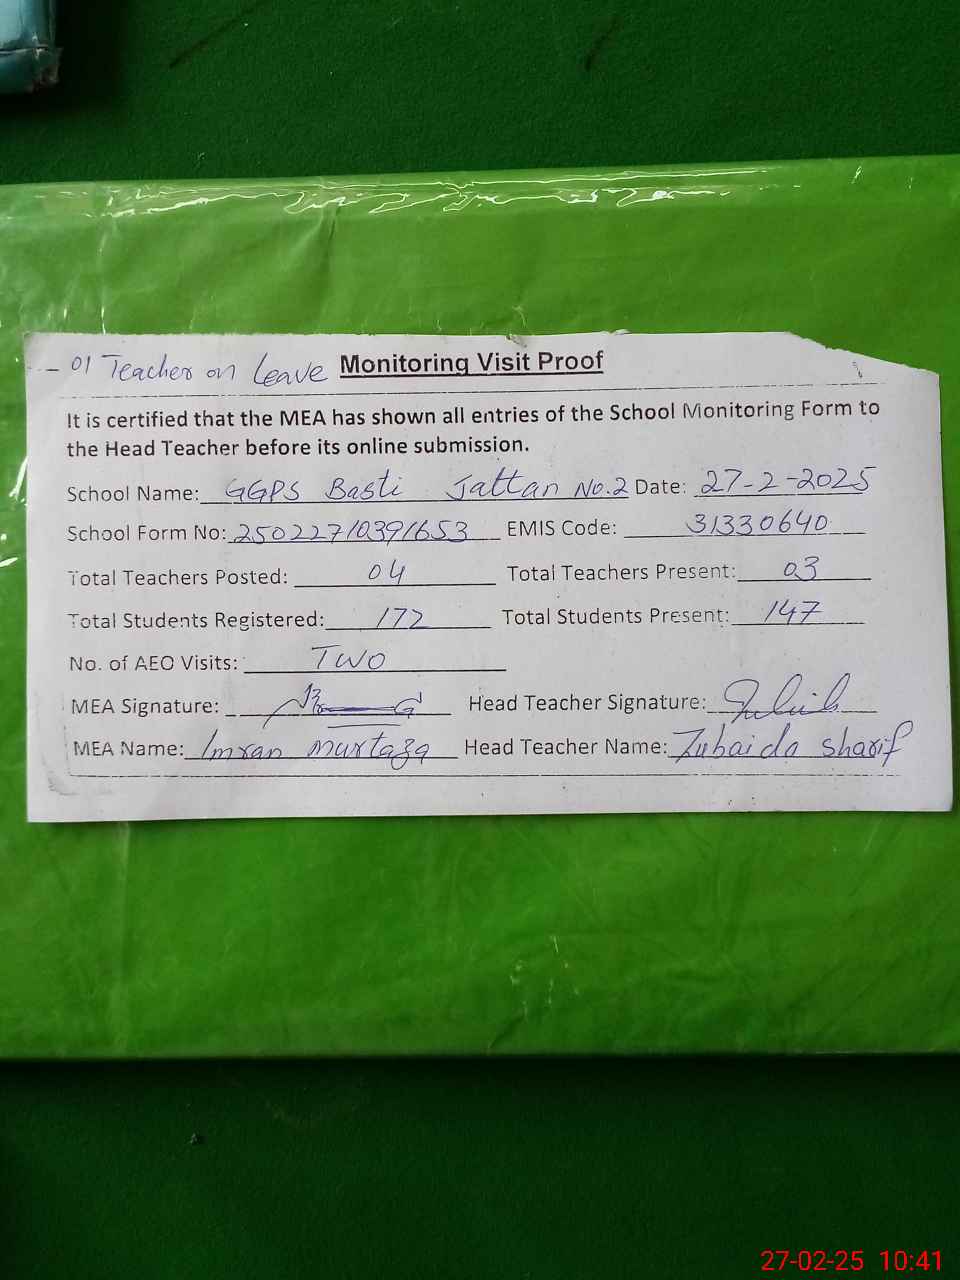 - 01 Teacher on Leave Monitoring Visit Proof
It is certified that the MEA has shown all entries of the School Monitoring Form to
the Head Teacher before its online submission.
School Name: GGPS Basti Jattan No.2 Date: 27-2-2025
School Form No: 25022710391653 EMIS Code: 31330640
Total Teachers Posted: 04 Total Teachers Present: 03
Total Students Registered: 172 Total Students Present: 147
No. of AEO Visits: TWO
MEA Signature: Head Teacher Signature:
MEA Name: Imran murtaza Head Teacher Name: Zubaida sharif
27-02-25 10:41